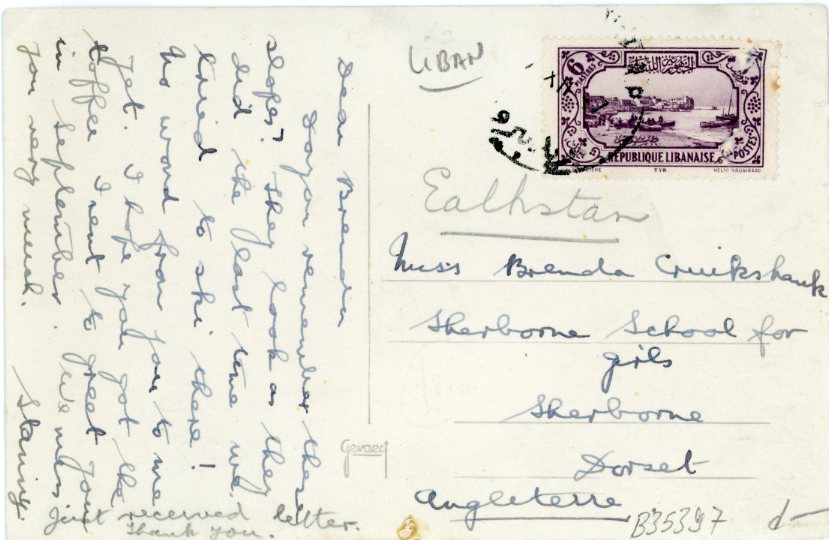 Dear Brenda
Do you remember these
slopes? They look as they
did the last time we
tried to ski there!
No word from you to me
yet. I hope you got the
toffee I sent to greet you
in September. We miss
you very much.
Just received letter.
Thank you.
LIBAN
6
PIASTRES
الجمهورية اللبنانية
REPUBLIQUE LIBANAISE
POSTES
TYR
HELIO VAUGIRARD
Ealhstan
Miss Brenda Cruikshank
Sherborne School for
girls
Sherborne
Dorset
Angleterre
Gevaert
B35397